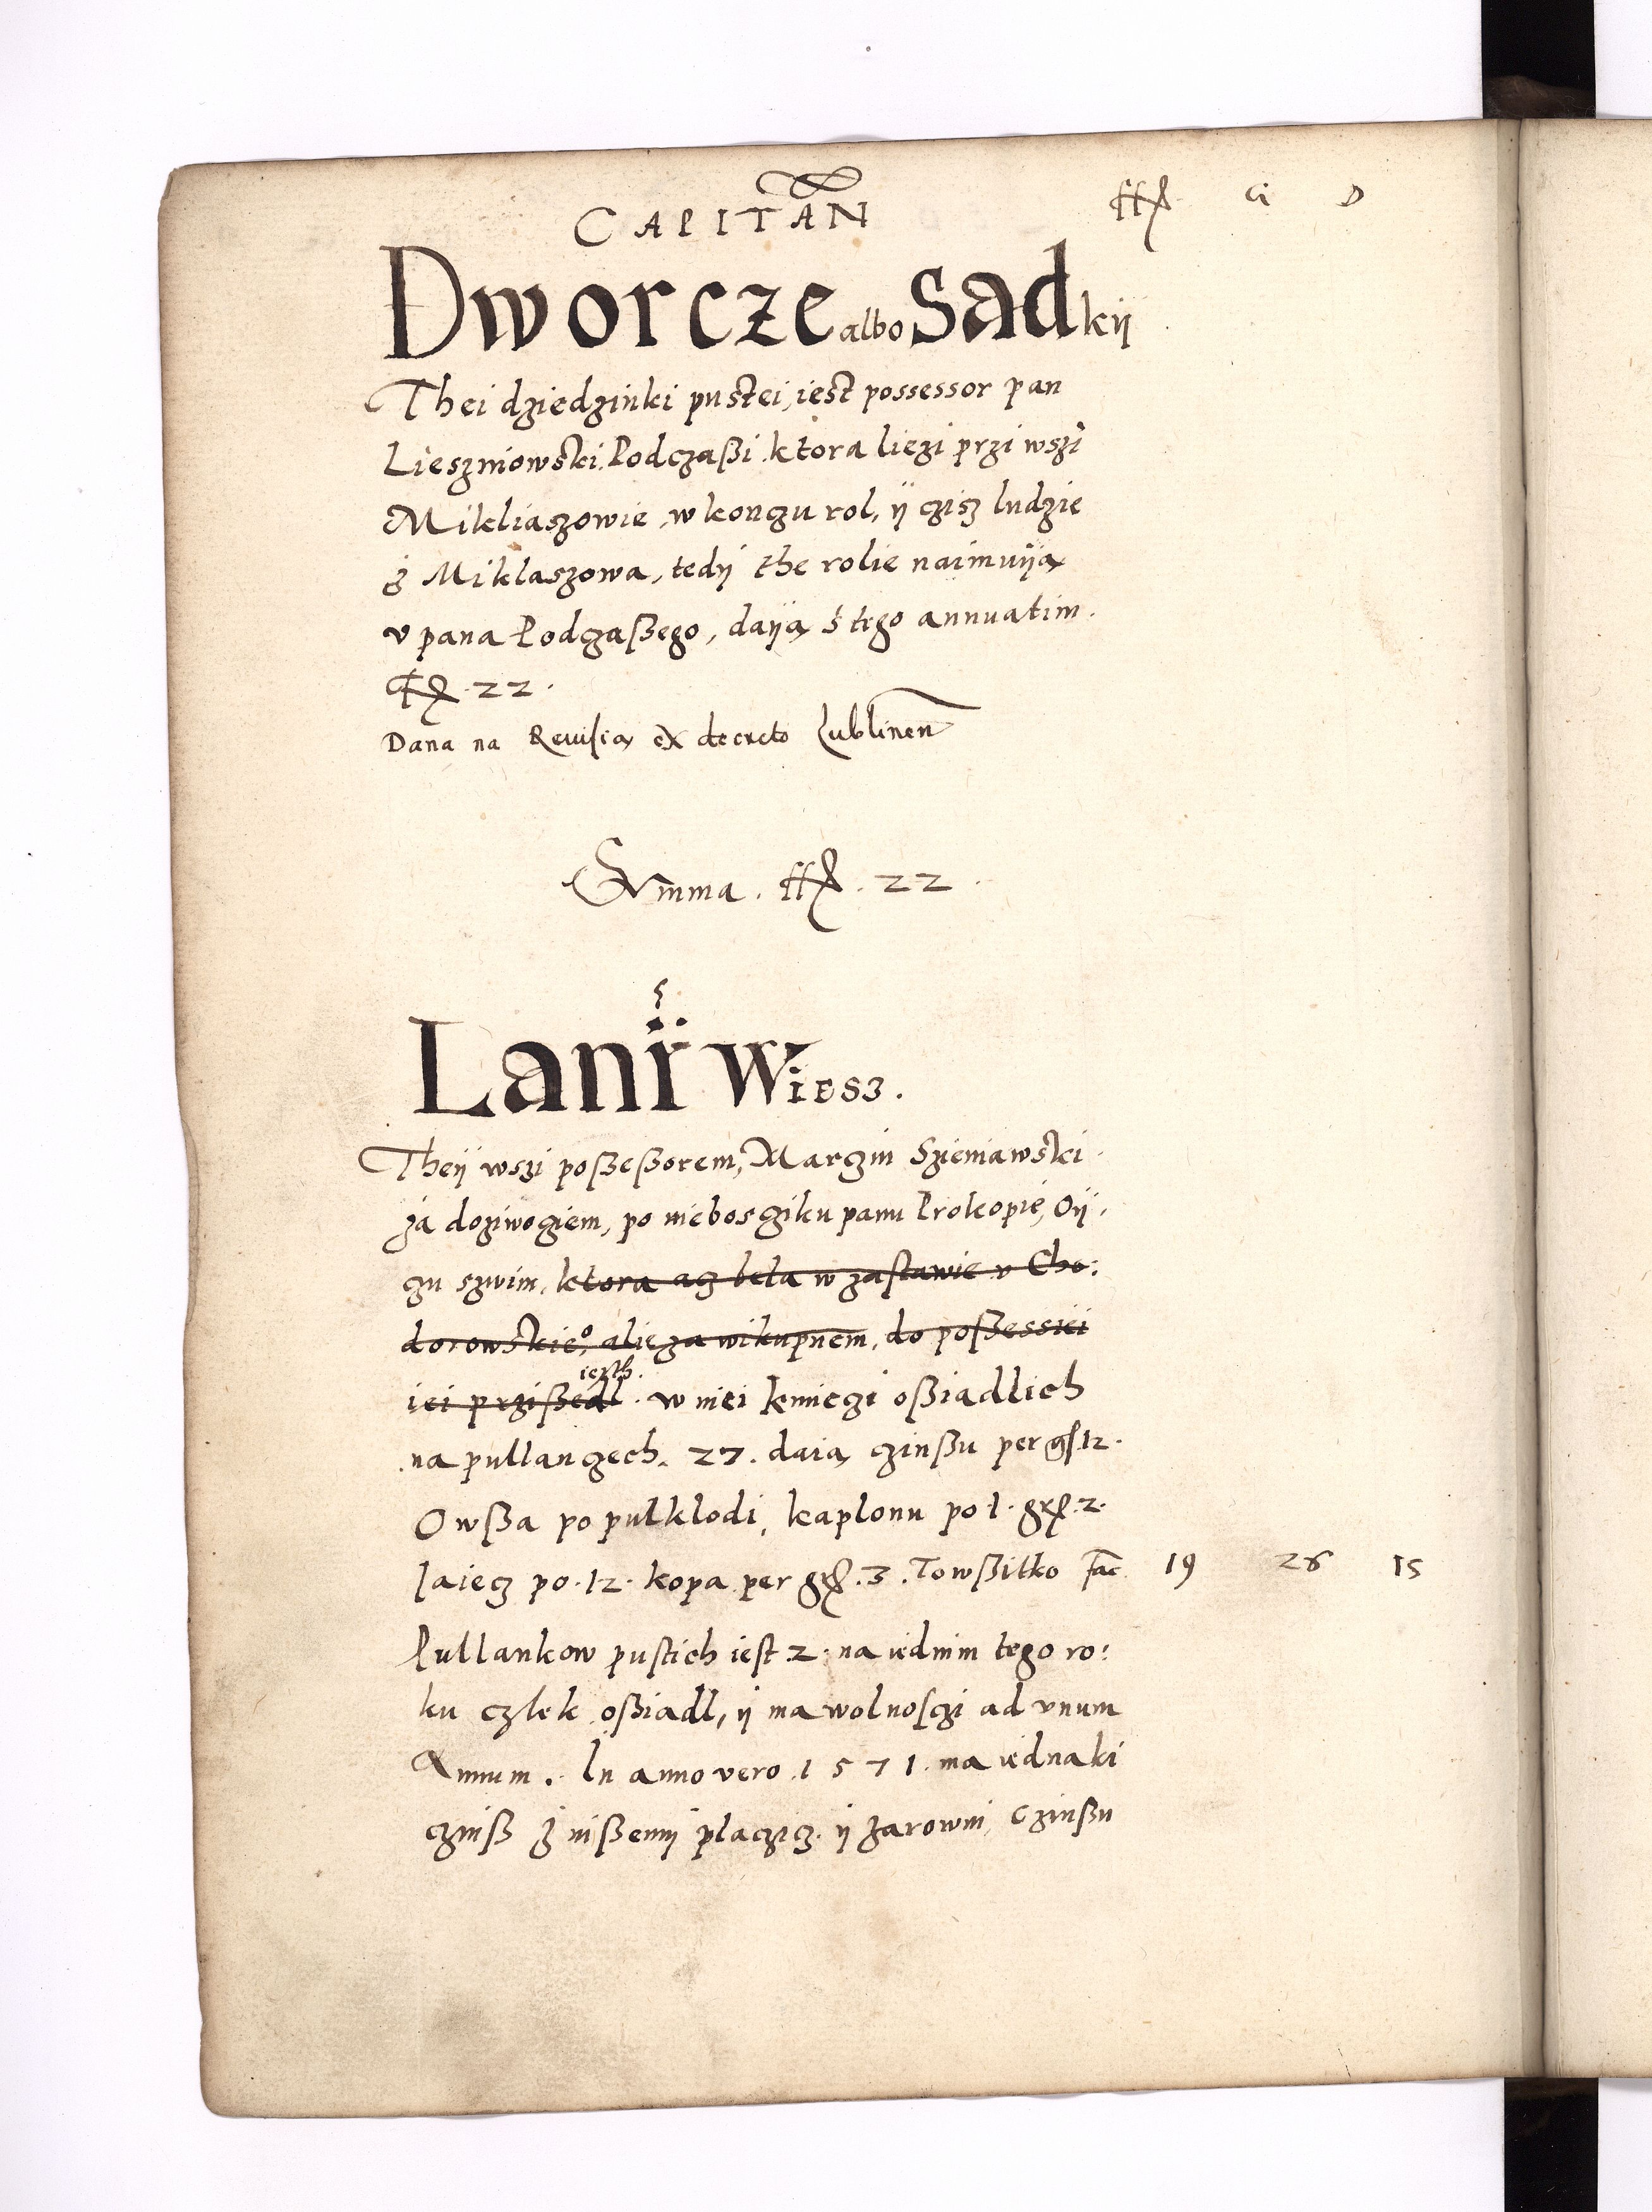 CAPITAN ffl. G D
Dworcze albo Sadkij
Thei dziedzinki pustei, iest possessor pan
Lieszniowski Podczaßi ktora liezi przi wszi
Mikliaszowie, w konczu rol, ij czisz ludzie
z Miklaszowa, tedij the rolie naimuiją
v pana Podczaßego, daiją s tego annuatim.
ffl. 22.
Dana na Reuisią ex decreto Lublinen
Summa. ffl. 22.
Lanÿ Wiesz.
Theÿ wszi poßeßorem, Marczin Szieniawski
za doziwocziem, po nieboszciku panu Prokopie, Oÿ,
czu szwim, ktora acz beła w zastawie v Cho:
dorowskieo, alie za wikupnem, do poßessiei
iei przißedl iezth. w niei kmieczi oßiadlich
na pullanczech. 27. daią czinßu per gs. 12.
Owßa po pulklodi, kaplonu po 1. grl. 2.
Iaiecz po. 12. kopa per grl. 3. To wßitko fac 19 26 15
Pullankow pustich iest 2. na iednim tego ro:
ku człek oßiadl, ij ma wolnosczi ad vnum
Annum. In anno vero. 1571. ma iednaki
czinß z nißemij placzicz. ij zarowni, Czinßu